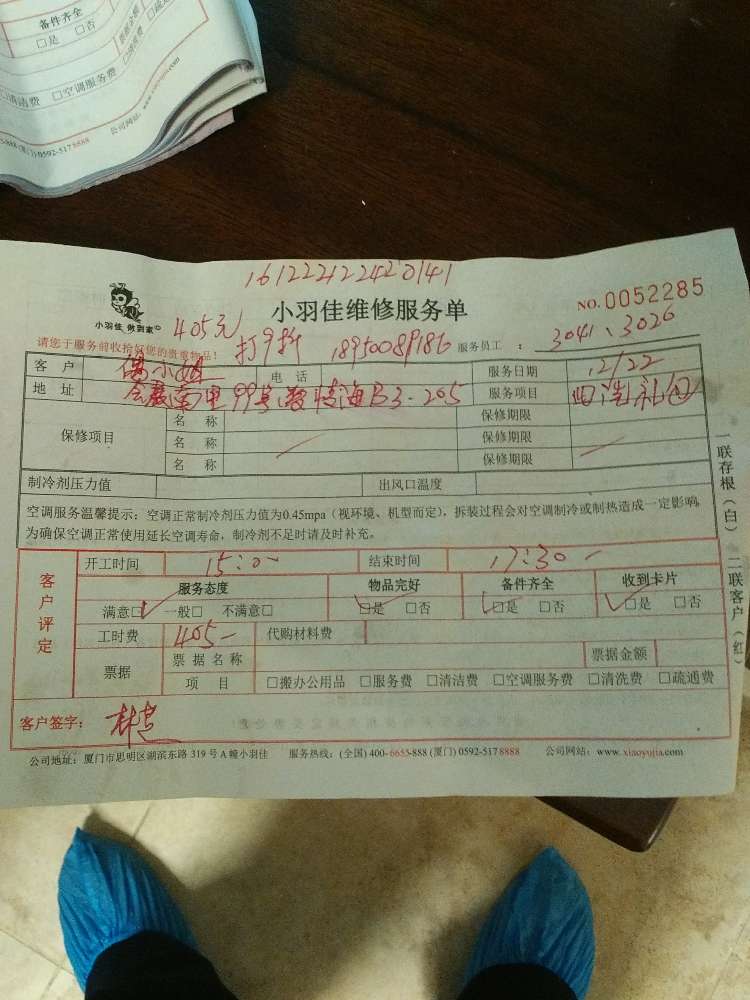 备件齐全
□是 □否
清洁费 □空调服务费
公司网站: www.
(厦门) 0592-5178888
16122212242 0141
小羽佳 做到家
小羽佳维修服务单
NO.0052285
405元
打9折 18950089186
服务员工 : 3041、3026
请您于服务前收拾好您的贵重物品!
客 户 小姐 电 话 服务日期 12/22
地 址 99号 海B3-205 服务项目 四洗礼包
保修项目 名 称 保修期限
名 称 保修期限
名 称 保修期限
制冷剂压力值 出风口温度
空调服务温馨提示:空调正常制冷剂压力值为0.45mpa(视环境、机型而定),拆装过程会对空调制冷或制热造成一定影响,
为确保空调正常使用延长空调寿命,制冷剂不足时请及时补充。
客户评定
开工时间 15:0- 结束时间 17:30-
服务态度 物品完好 备件齐全 收到卡片
满意□ 一般□ 不满意□ □是 □否 □是 □否 □是 □否
工时费 405- 代购材料费
票据 票 据 名 称 票据金额
项 目 □搬办公用品 □服务费 □清洁费 □空调服务费 □清洗费 □疏通费
客户签字:
一联存根(白) 二联客户(红)
公司地址:厦门市思明区湖滨东路 319 号 A 幢小羽佳 服务热线:(全国) 400-6655-888 (厦门) 0592-5178888 公司网站:www.xiaoyujia.com